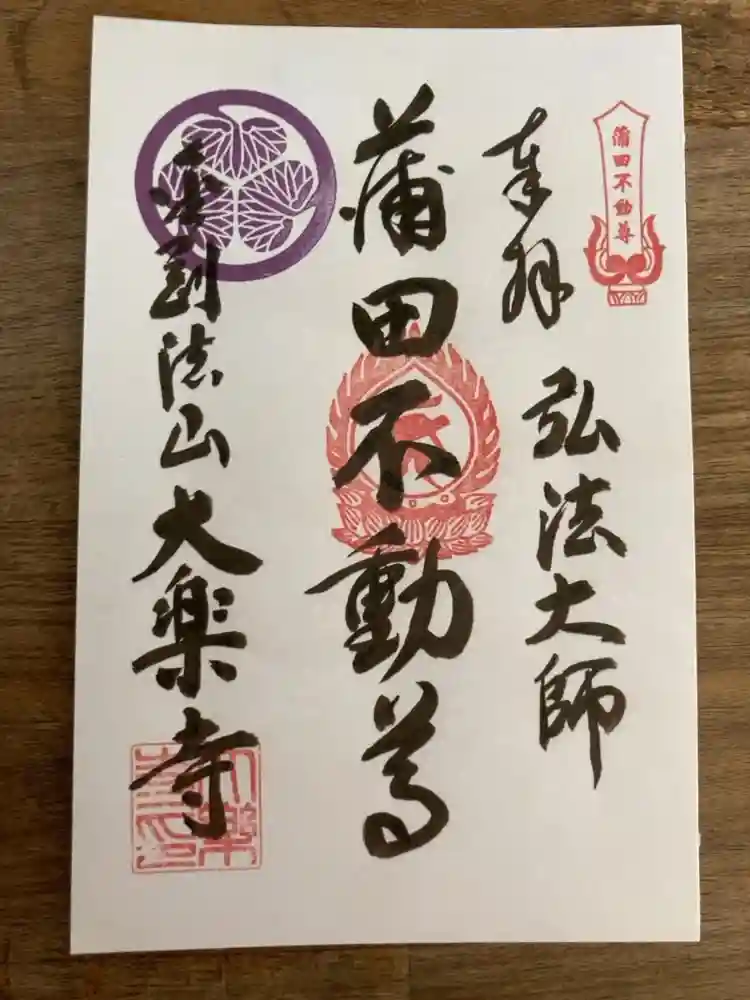 蒲田不動尊
奉拝
弘法大師
蒲田不動尊
法山
大楽寺